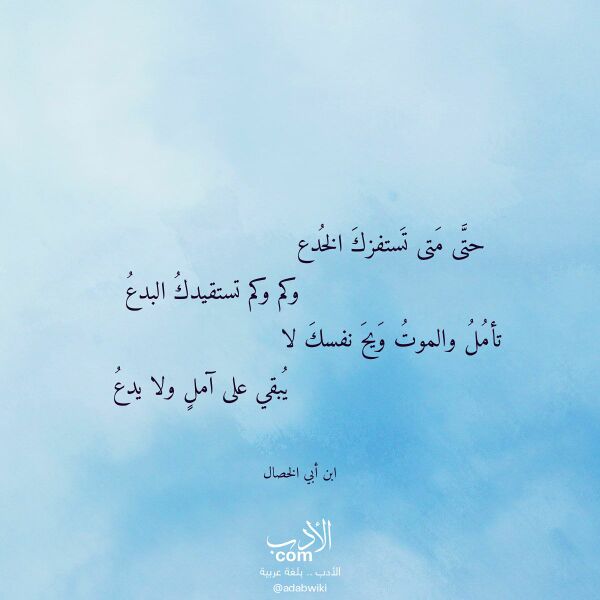 حتَّى مَتى تَستفزكَ الخُدع
وكم وكم تستقيدكُ البدعُ
تأمُلُ والموتُ وَيحَ نفسكَ لا
يُبقي على آملٍ ولا يدعُ
ابن أبي الخصال
الأدب
com
الأدب .. بلغة عربية
@adabwiki